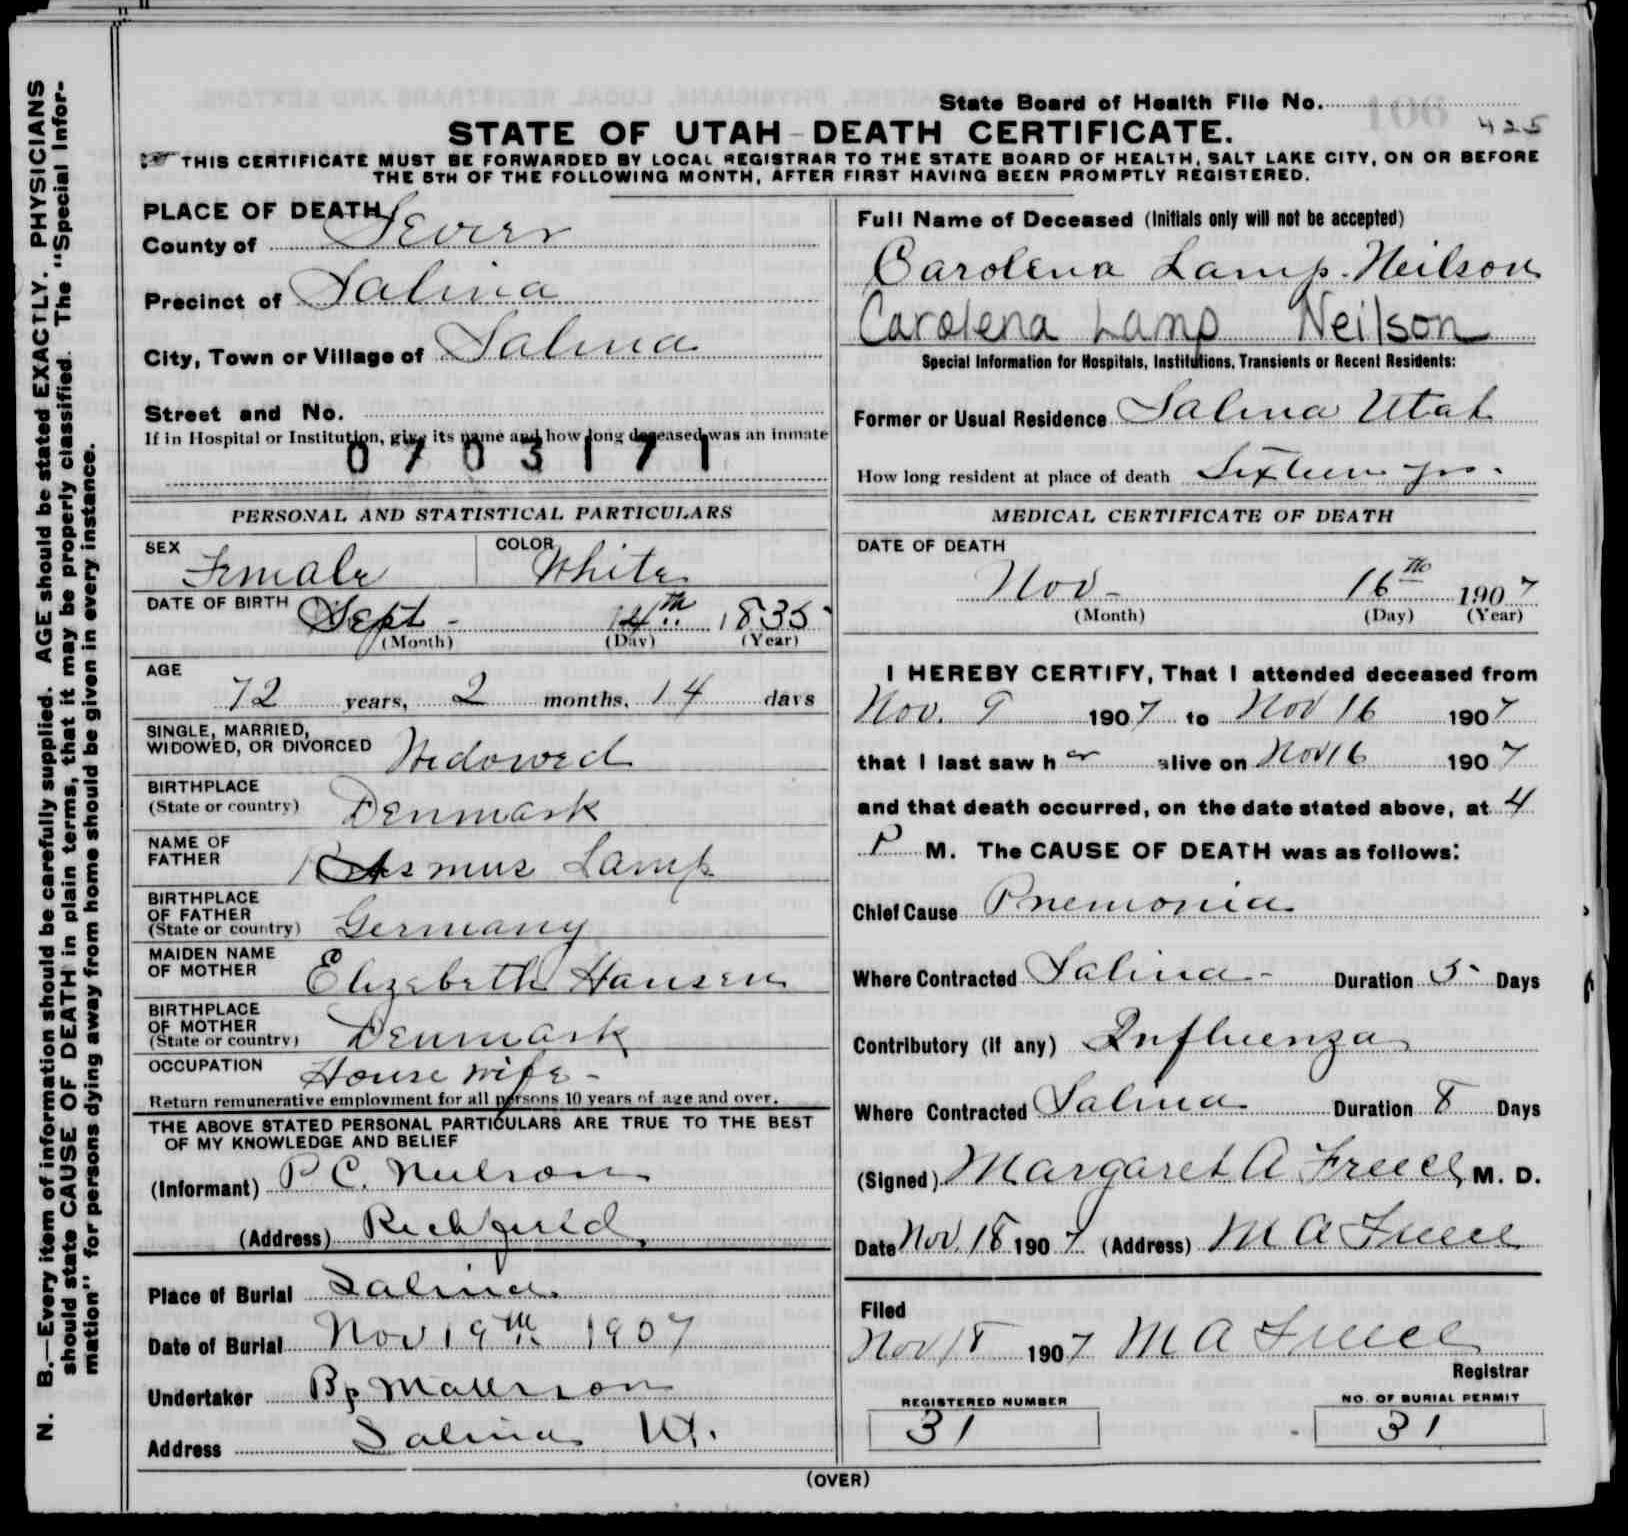 State Board of Health File No.
425
STATE OF UTAH - DEATH CERTIFICATE.
THIS CERTIFICATE MUST BE FORWARDED BY LOCAL REGISTRAR TO THE STATE BOARD OF HEALTH, SALT LAKE CITY, ON OR BEFORE
THE 5TH OF THE FOLLOWING MONTH, AFTER FIRST HAVING BEEN PROMPTLY REGISTERED.
N. B.—Every item of information should be carefully supplied. AGE should be stated EXACTLY. PHYSICIANS
should state CAUSE OF DEATH in plain terms, that it may be properly classified. The "Special Infor-
mation" for persons dying away from home should be given in every instance.
PLACE OF DEATH
County of Sevier
Precinct of Salina
City, Town or Village of Salina
Street and No.
If in Hospital or Institution, give its name and how long deceased was an inmate
0703171
PERSONAL AND STATISTICAL PARTICULARS
SEX Female COLOR White
DATE OF BIRTH Sept - 14th 1835
(Month) (Day) (Year)
AGE
72 years, 2 months, 14 days
SINGLE, MARRIED,
WIDOWED, OR DIVORCED Widowed
BIRTHPLACE
(State or country) Denmark
NAME OF
FATHER Rasmus Lamp
BIRTHPLACE
OF FATHER
(State or country) Germany
MAIDEN NAME
OF MOTHER Elizebeth Hansen
BIRTHPLACE
OF MOTHER
(State or country) Denmark
OCCUPATION House wife -
Return remunerative employment for all persons 10 years of age and over.
THE ABOVE STATED PERSONAL PARTICULARS ARE TRUE TO THE BEST
OF MY KNOWLEDGE AND BELIEF
(Informant) P C. Neilson
(Address) Richfield
Place of Burial Salina
Date of Burial Nov 19th 1907
Undertaker Bp Matterson
Address Salina Ut.
Full Name of Deceased (Initials only will not be accepted)
Carolena Lamp. Neilson
Carolena Lamp Neilson
Special Information for Hospitals, Institutions, Transients or Recent Residents:
Former or Usual Residence Salina Utah
How long resident at place of death Sixteen yrs.
MEDICAL CERTIFICATE OF DEATH
DATE OF DEATH
Nov - 16th 1907
(Month) (Day) (Year)
I HEREBY CERTIFY, That I attended deceased from
Nov. 9 1907 to Nov 16 1907
that I last saw her alive on Nov 16 1907
and that death occurred, on the date stated above, at 4
P M. The CAUSE OF DEATH was as follows:
Chief Cause Pnemonia
Where Contracted Salina - Duration 5 Days
Contributory (if any) Influenza
Where Contracted Salina Duration 8 Days
(Signed) Margaret A Freece, M. D.
Date Nov. 18 1907 (Address) M A Freece
Filed
Nov 18 1907 M A Freece
Registrar
REGISTERED NUMBER
31
NO. OF BURIAL PERMIT
31
(OVER)